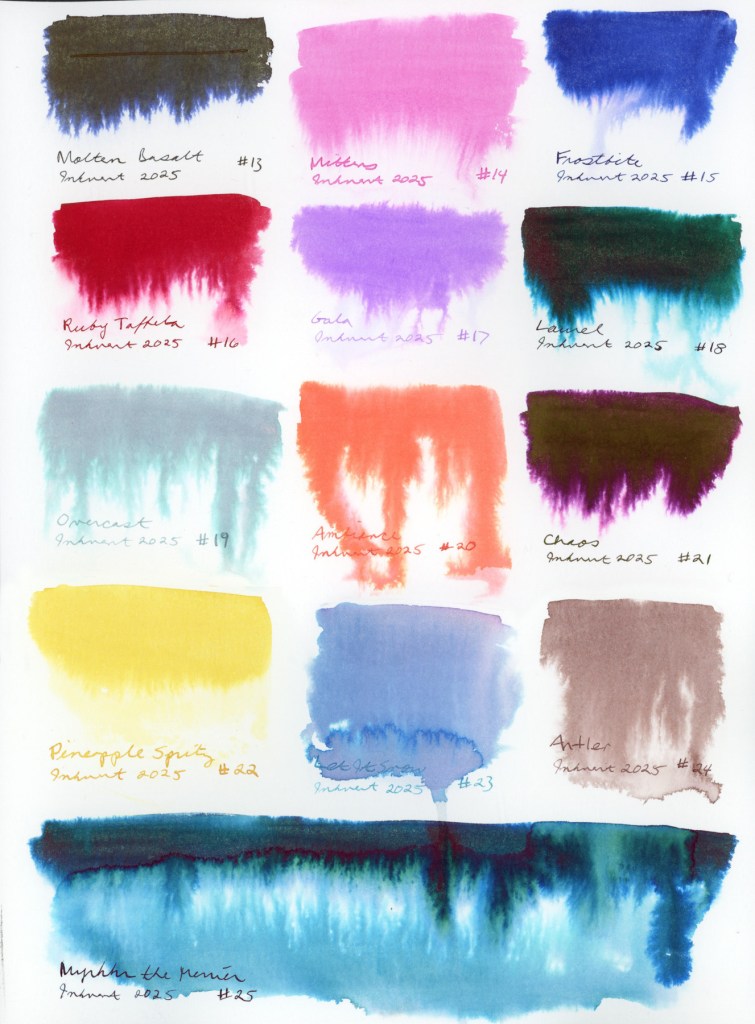 Molten Basalt #13
Inkvent 2025
Mittens
Inkvent 2025 #14
Frostbite
Inkvent 2025 #15
Ruby Taffeta
Inkvent 2025 #16
Gala
Inkvent 2025 #17
Laurel
Inkvent 2025 #18
Overcast
Inkvent 2025 #19
Ambiance
Inkvent 2025 #20
Chaos
Inkvent 2025 #21
Pineapple Spritz
Inkvent 2025 #22
Let It Snow
Inkvent 2025 #23
Antler
Inkvent 2025 #24
the Merrier
Inkvent 2025 #25